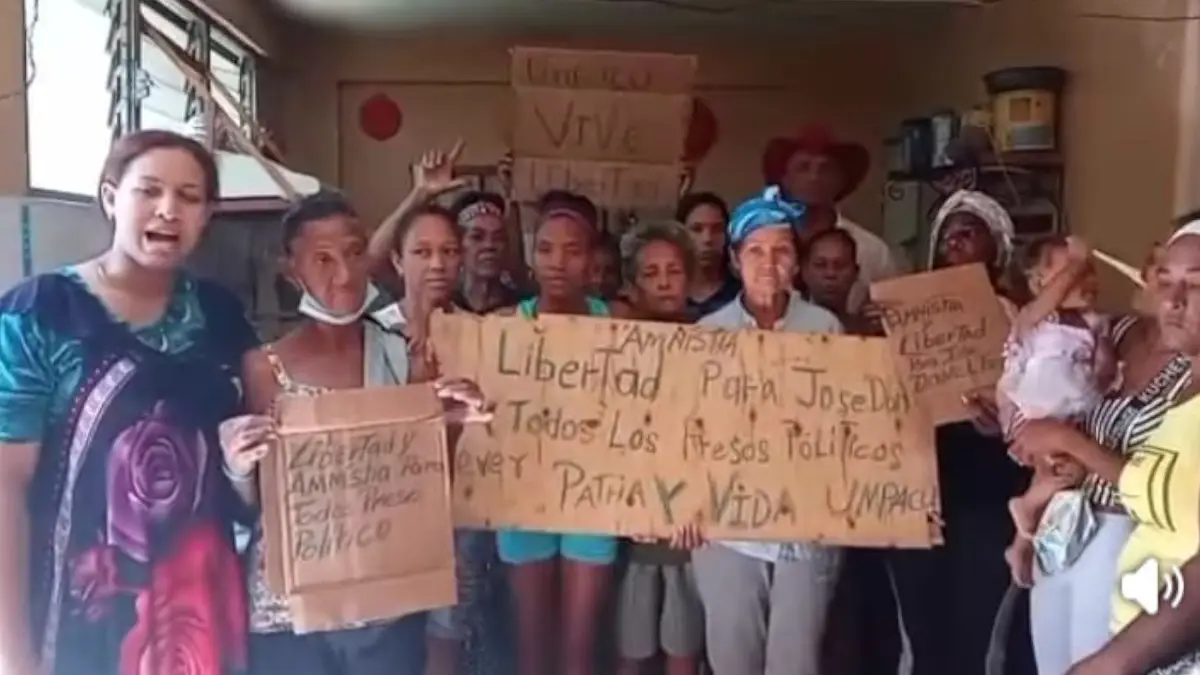 VIVE
LiberTad
AMNISTIA
LiberTad Para JoseDan
Todos Los Presos PóLiTicos
ever PaTria Y Vida UMPACU
Libertad y
AMNistia Para
Todo Preso
PoLitico
AMNisTIA
y
Libertad
Para Jose